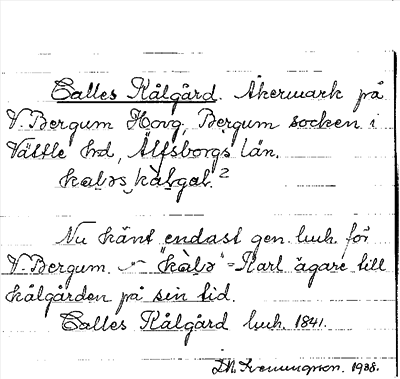 Calles Kålgård. Åkermark på
V. Bergum Hovg, Bergum socken i
Vättle hd, Älfsborgs län.
kaləs kålgal. 2
Nu känt endast gen. luh för
V. Bergum. "kalə" = Karl ägare till
kålgården på sin tid.
Calles Kålgård luh. 1841.
1938.